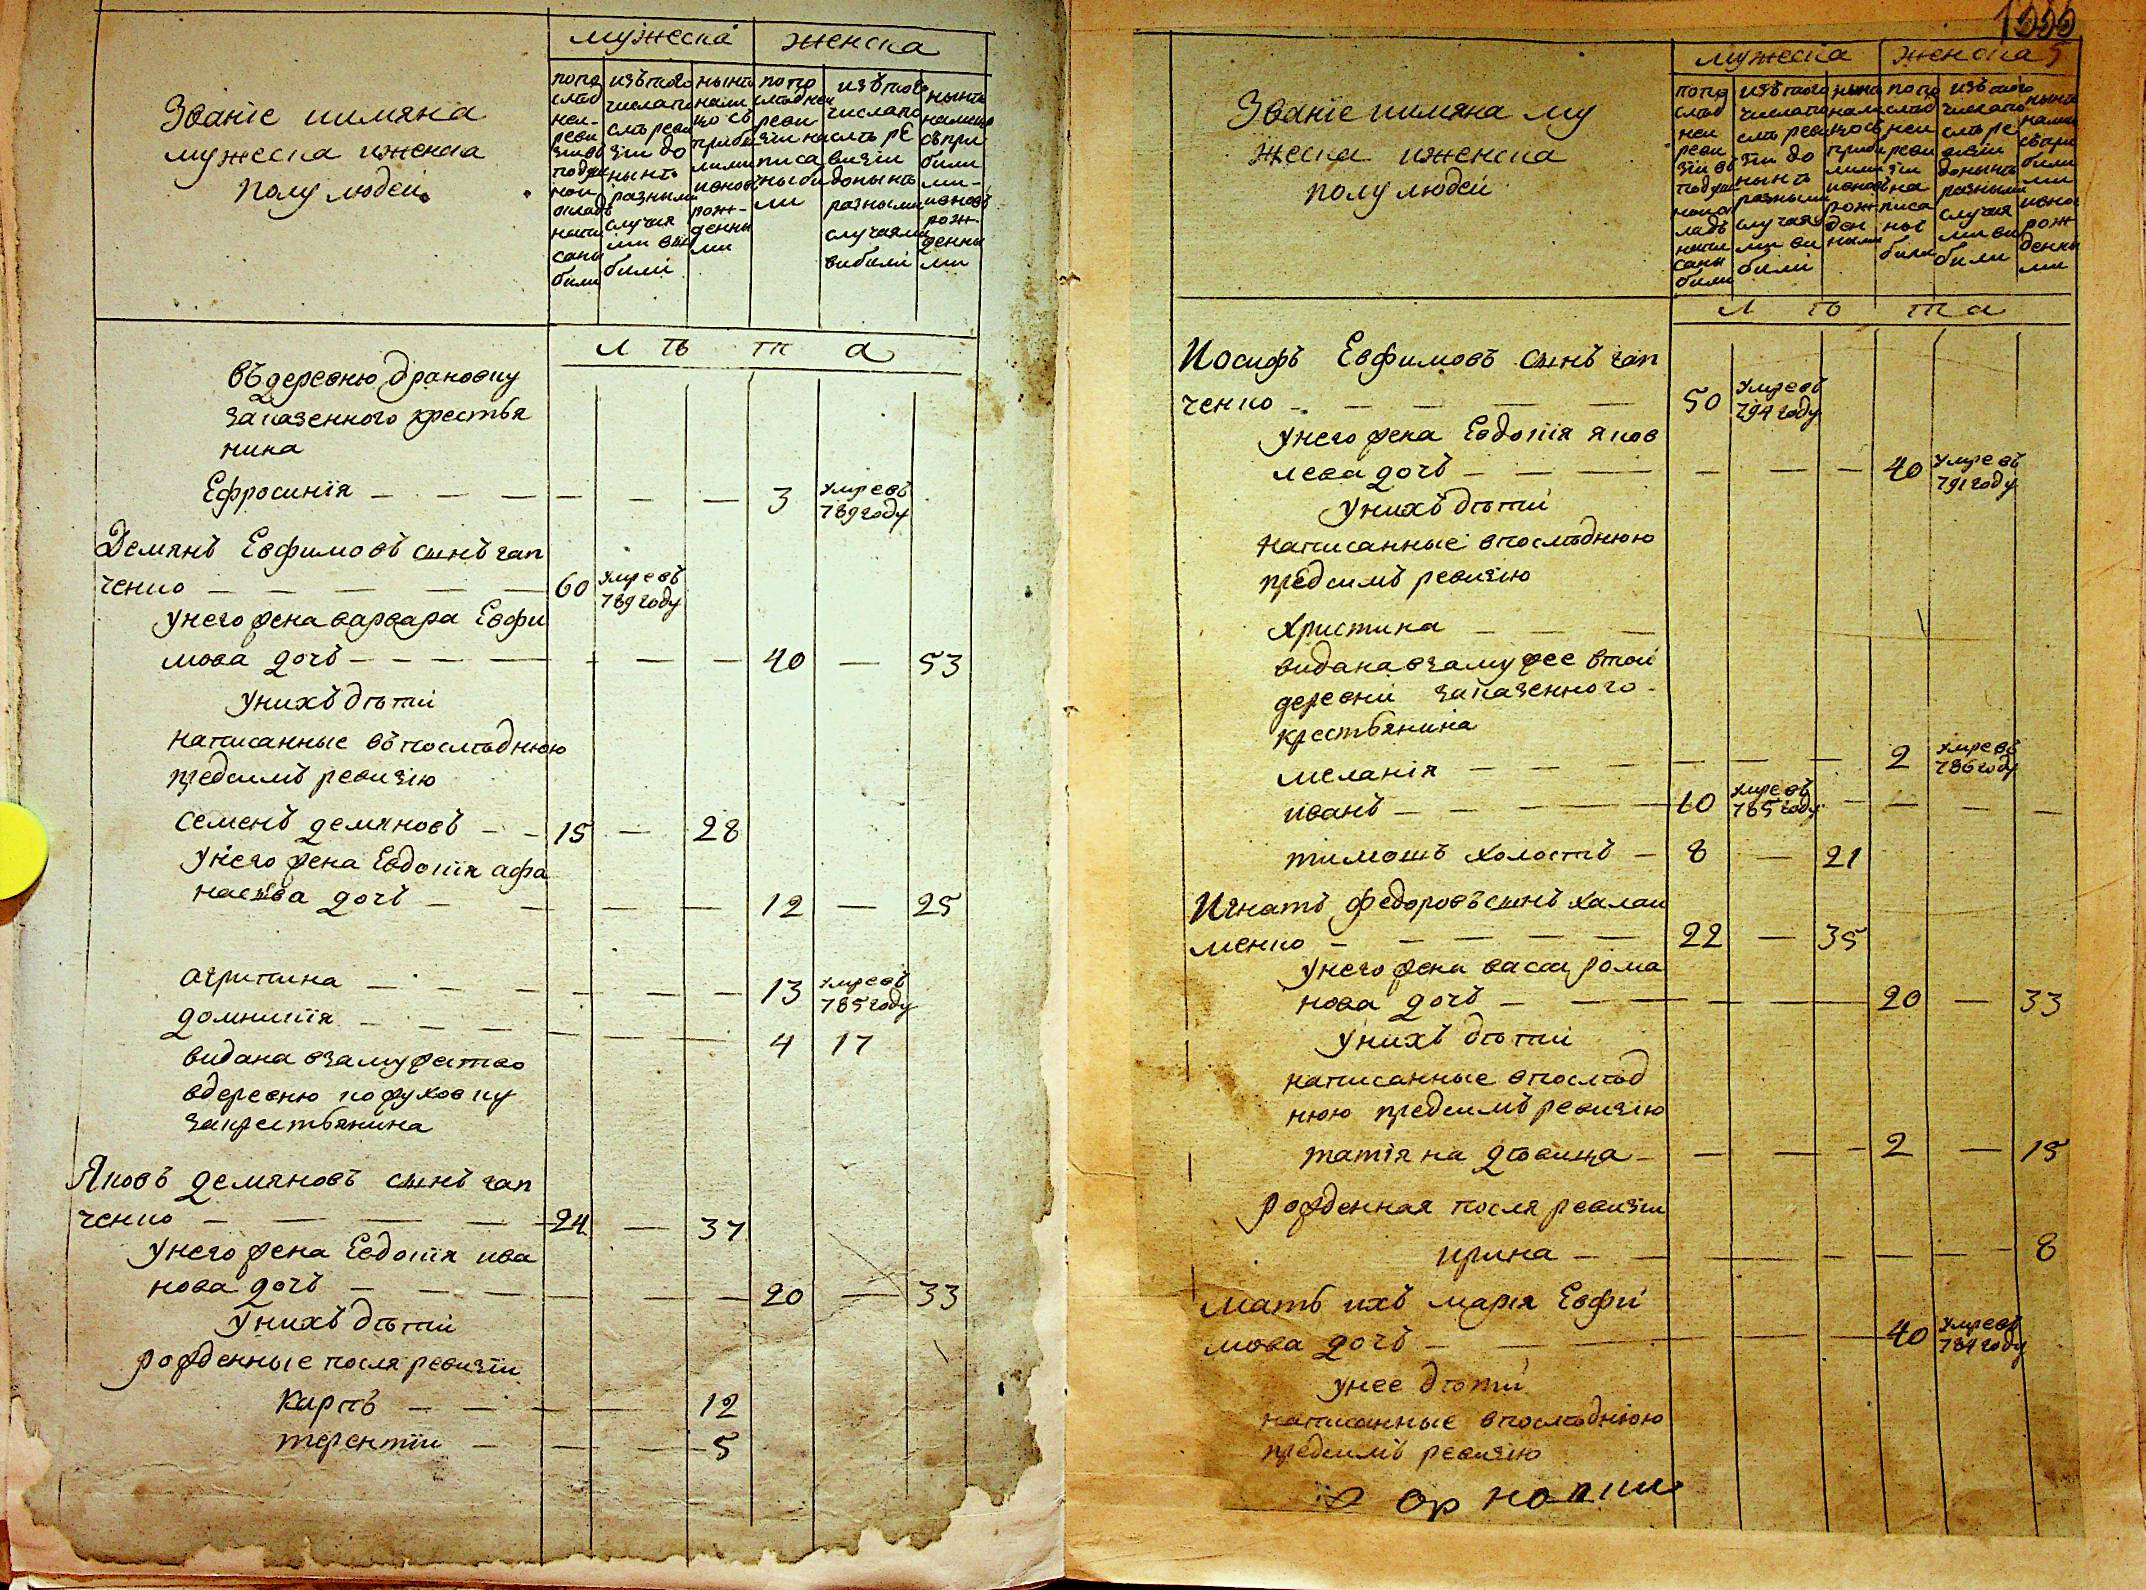 мужеска женска
Званіе иимяна
мужеска иженска
полу людей
попо
след
ней
реви
зіи въ
подуш
ной
окладъ
напи
саны
были
изътого
числапо
слѣ реви
зіи до
нынѣ
разными
случая
ми вы
были
нынѣ
нали
цо съ
прибы
лыми
иновъ
рож-
денны
ми
попо
слѣдней
реви
зіи на
писа
ны бы
ли
изътого
числапо
слѣ ре
визіи
донынѣ
разными
случаями
выбыли
нынѣ
налицо
съпри
былы
ми-
иновъ
рож-
денны
ми
л ѣ т а
въдеревню драновку
заказенного крестья
нина
Ефросинія — — — 3 умре въ
789 году
Демянъ Евфимовъ сынъ гап
ченко — — — 60 умре въ
789 году
унего жена варвара Евфи
мова дочь — — — 40 — 53
унихъ дѣти
написанные въпослѣднюю
предсимъ ревизію
семенъ демяновъ — — 15 — 28
унего жена Евдокія афа
насіева дочь — — — 12 — 25
агрипина — — — 13 умре въ
785 году
домникія — — — 4 17
видана взамужество
вдеревню кожуховку
закрестьянина
Яковъ демяновъ сынъ гап
ченко — — — 24 — 37
унего жена Евдокія ива
нова дочь — — — 20 — 33
унихъ дѣти
рожденные после ревизіи
карпъ — — — 12
терентій — — — 5
мужеска женска 5
Званіе иимяна му
жеска иженска
полу людей
попо
слѣд
ней
реви
зіи въ
подуш
ной ок
ладъ
напи
саны
были
изътого
числапо
слѣ реви
зіи до
нынѣ
разными
случая
ми вы
были
нынѣ
нали
цо съ
прибы
лыми
иновъ
рож
ден
ными
попо
слѣд
ней
реви
зіи
на
писа
ны
были
изътого
числапо
слѣ ре
визіи
донынѣ
разными
случая
ми вы
были
нынѣ
нали
съпри
былы
ми
ивно
рож
денны
ми
л ѣ т а
Иосифъ Евфимовъ сынъ гап
ченко — — — 50 умре въ
794 году
унего жена Евдокія яков
лева дочь — — — 40 умре въ
791 году
унихъ дѣти
написанные впослѣднюю
предсимъ ревизію
христина — — —
видана взамужее втой
деревни заказенного
крестьянина
меланія — — — 2 умре въ
786 году
иванъ — — — 10 умре въ
785 году
тимошъ холостъ — 8 — 21
Игнатъ федоровъ сынъ халаи
менко — — — 22 — 35
унего жена васса рома
нова дочь — — — 20 — 33
унихъ дѣти
написанные впослѣд
нюю предсимъ ревизію
татіяна дѣвица — — 2 — 15
рожденная после ревизіи
ирина — — — 8
мать ихъ марія Евфи
мова дочь — — — 40 умре въ
784 году
унее дѣти
написанные впослѣднюю
предсимъ ревизію